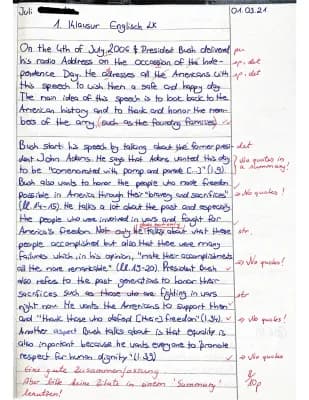 Juli
01.03.21
1. Klausur Englisch LK
On the 4th of July, 2006 President Bush delivered
his radio Address on the occassion of the Inde-
pendence Day. He adresses all the Americans with
this speech to wish them a safe and happy day.
The main idea of this speech is to look back to the
American history and to thank and honor the mem-
bers of the army (such as the founding families)
Bush starts his speech by talking about the former presi-
dent John Adams. He says that Adams wanted this day
to be "comemorated with pomp and parade (...)" (l.9).
Bush also wants to honor the people who made freedom
possible in America through their "bravery and sacrifices"
(ll.14-15). He talks a lot about the past and especially
the people who were involved in wars and fought for
America's freedom. Not only he talks about what these
people accomplished but also that there were many
failures which, in his opinion, "make their accomplishments
all the more remarkable" (ll.19-20). President Bush
also refers to the past generations to honor their
sacrifices such as those who are fighting in wars
right now. He wants the Americans to support them
and "thank those who defend [their] freedom" (l.34).
Another aspect Bush talks about is that equality is
also important because he wants everyone to "promote
respect for human dignity" (l.39)
Eine gute Zusammenfassung
Aber bitte keine Zitate in einem 'Summary'
benutzen!
sp. det
sp.
det
No quotes in
a summary!
No quotes!
str.
No quotes!
str
No quotes!
No quotes!
10p